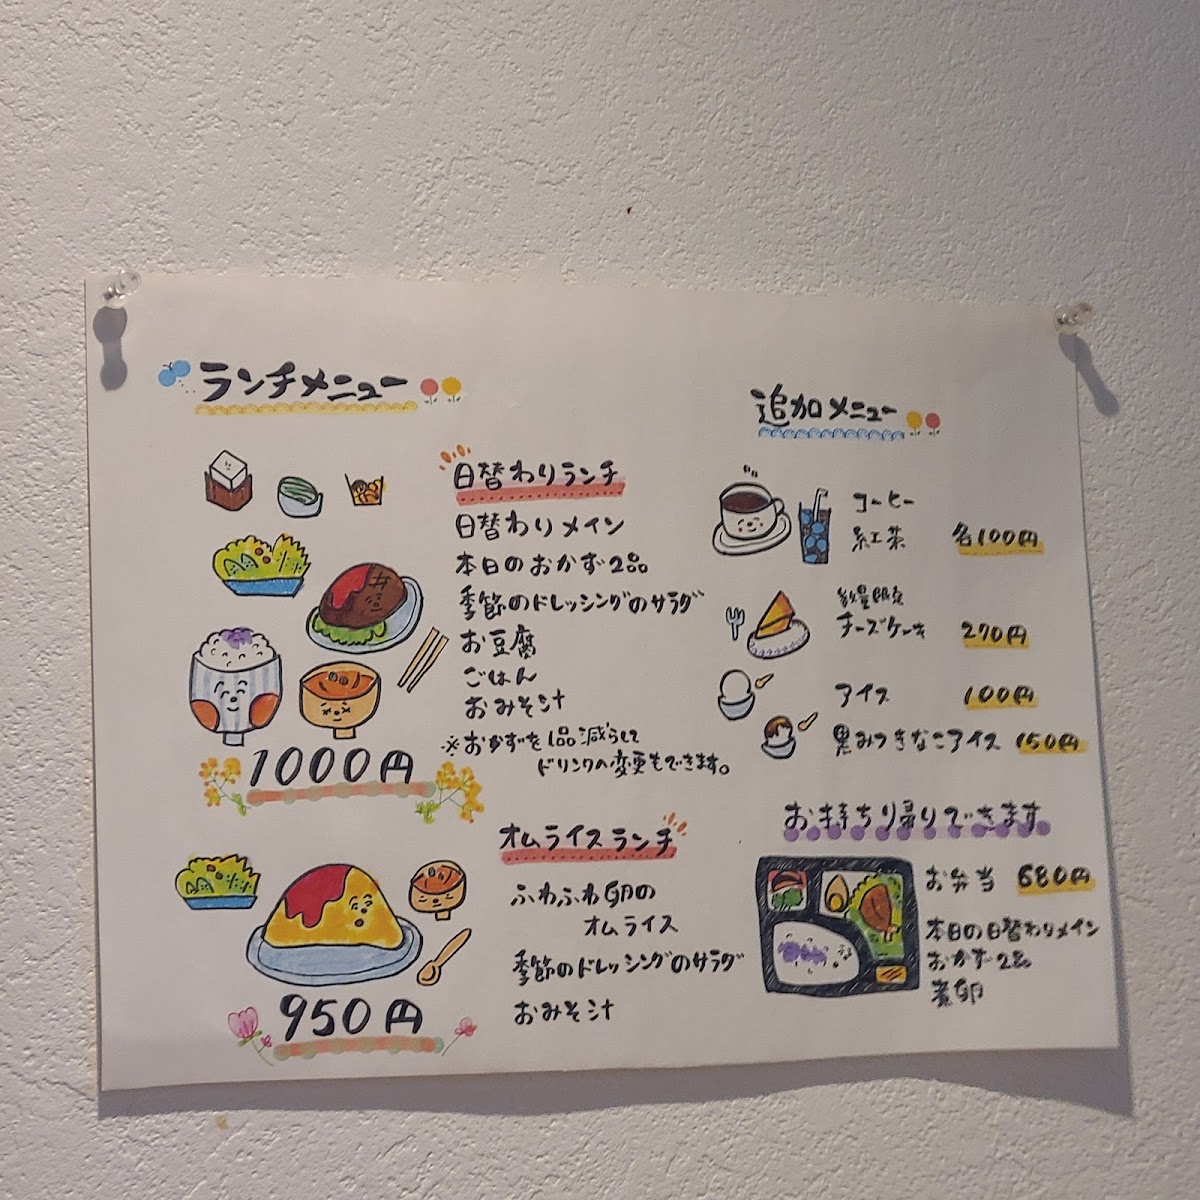 ランチメニュー
日替わりランチ
日替わりメイン
本日のおかず2品
季節のドレッシングのサラダ
お豆腐
ごはん
おみそ汁
※おかずを1品減らして
ドリンクへ変更もできます。
1000円
オムライスランチ
ふわふわ卵の
オムライス
季節のドレッシングのサラダ
おみそ汁
950円
追加メニュー
コーヒー
紅茶 各100円
数量限定
チーズケーキ 270円
アイス 100円
黒みつきなこアイス 150円
お持ち帰りできます
お弁当 680円
本日の日替わりメイン
おかず2品
煮卵